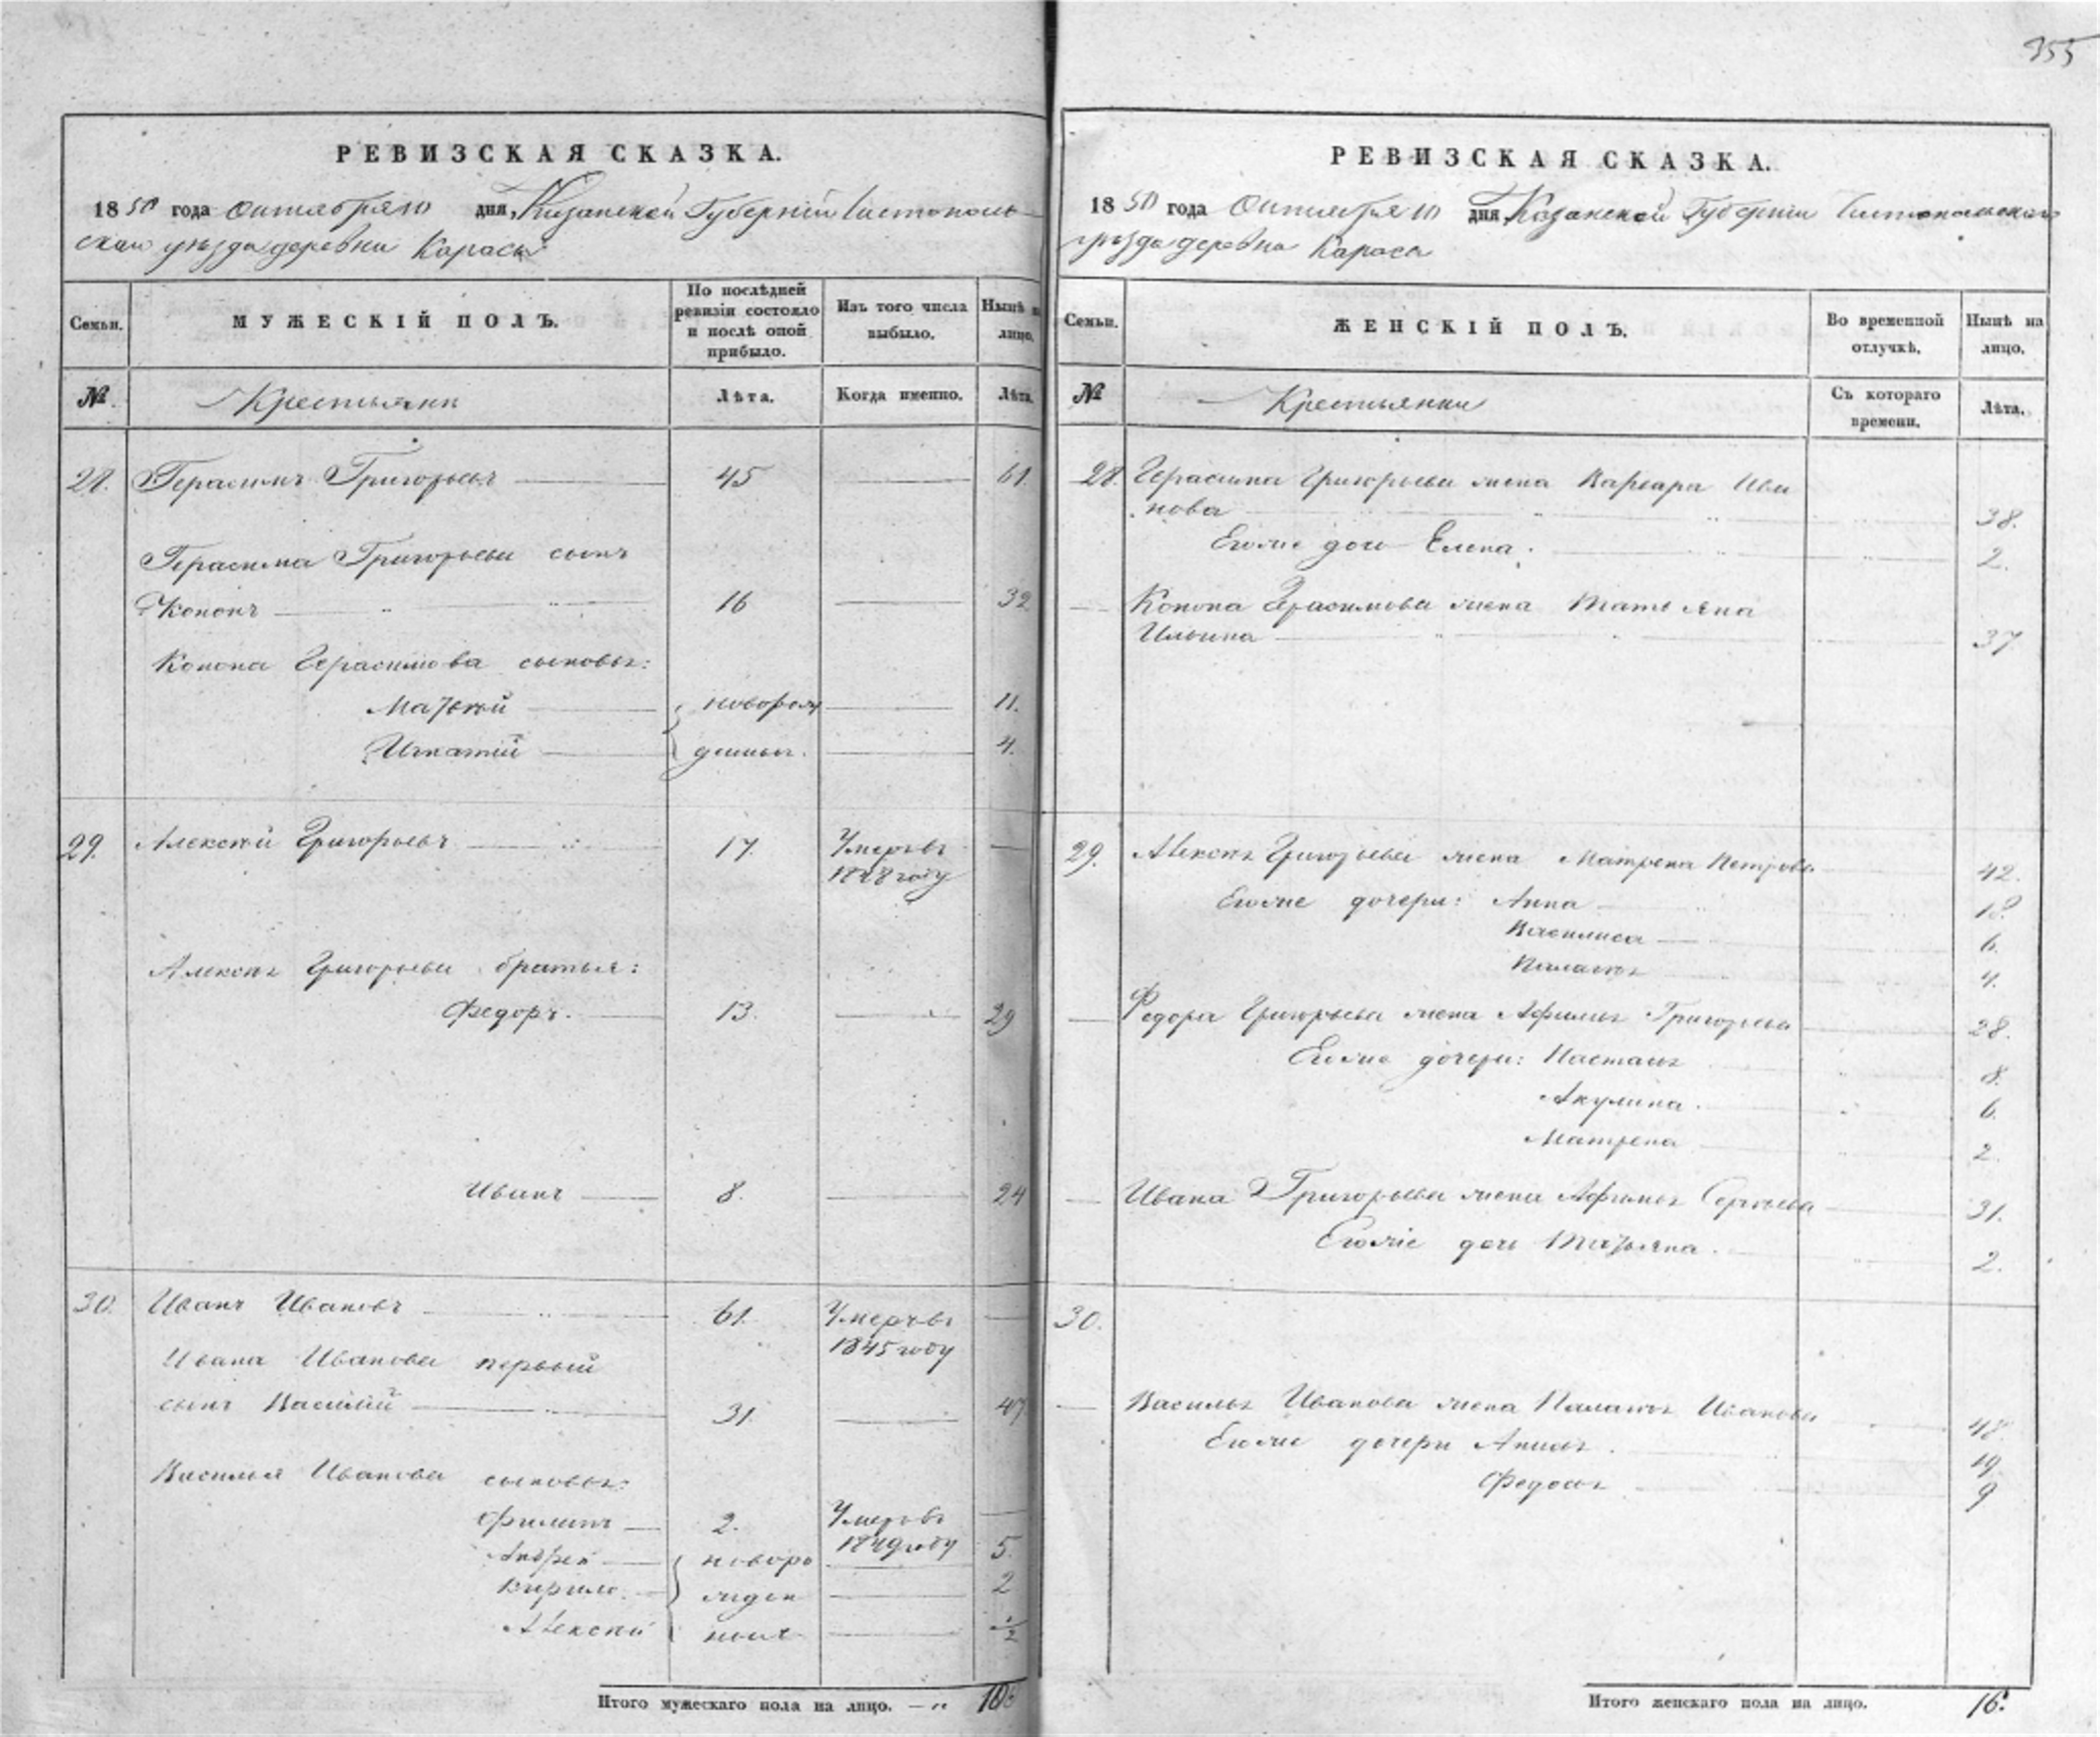 355
РЕВИЗСКАЯ СКАЗКА.
1850 года октября 10 дня Казанской Губернiи Чистополь
скаго уезда деревни Карасы
Семьи.
МУЖЕСКІЙ ПОЛЪ.
По послѣдней
ревизіи состояло
и послѣ оной
прибыло.
Изъ того числа
выбыло.
Нынѣ на
лицо.
№
Крестьяне
Лѣта.
Когда именно.
Лѣта.
28. Герасимъ Григорьевъ 45 61.
Герасима Григорьева сынъ
Кононъ 16 32
Конона Герасимова сыновья:
Матвѣй новорож 11.
Игнатій денные. 4.
29. Алексѣй Григорьевъ 17. Умеръ въ
1848 году
Алексѣя Григорьева братья:
Федоръ. 13. 29
Иванъ 8. 24
30. Иванъ Ивановъ 61. Умеръ въ
1845 году
Ивана Иванова первый
сынъ Василій 31. 47
Василья Иванова сыновья:
Филипъ 2. Умеръ въ
1849 году
Андрей новоро 5.
Кирило жден 2
Алексѣй ные 1/2
Итого мужескаго пола на лицо. 10
РЕВИЗСКАЯ СКАЗКА.
1850 года Октября 10 дня Казанской Губерніи Чистопольскаго
уѣзда деревни Карасы
Семьи.
ЖЕНСКІЙ ПОЛЪ.
Во временной
отлучкѣ.
Нынѣ на
лицо.
№
Крестьянки
Съ котораго
времени.
Лѣта.
28. Герасима Григорьева жена Варвара Ива
нова 38.
Его же дочь Елена. 2.
Конона Герасимова жена Татьяна
Ильина 37
29. Алексѣя Григорьева жена Матрена Петрова 42.
Его же дочери: Анна 18.
Василиса 6.
Палагѣя 4.
Федора Григорьева жена Афимья Григорьева 28.
Его же дочери: Настасья 8.
Акулина. 6.
Матрена 2.
Ивана Григорьева жена Афимья Сергѣева 31.
Его же дочь Татьяна. 2.
30.
Василья Иванова жена Палагѣя Иванова 48
Его же дочери 19
Федосья 9
Итого женскаго пола на лицо. 16.